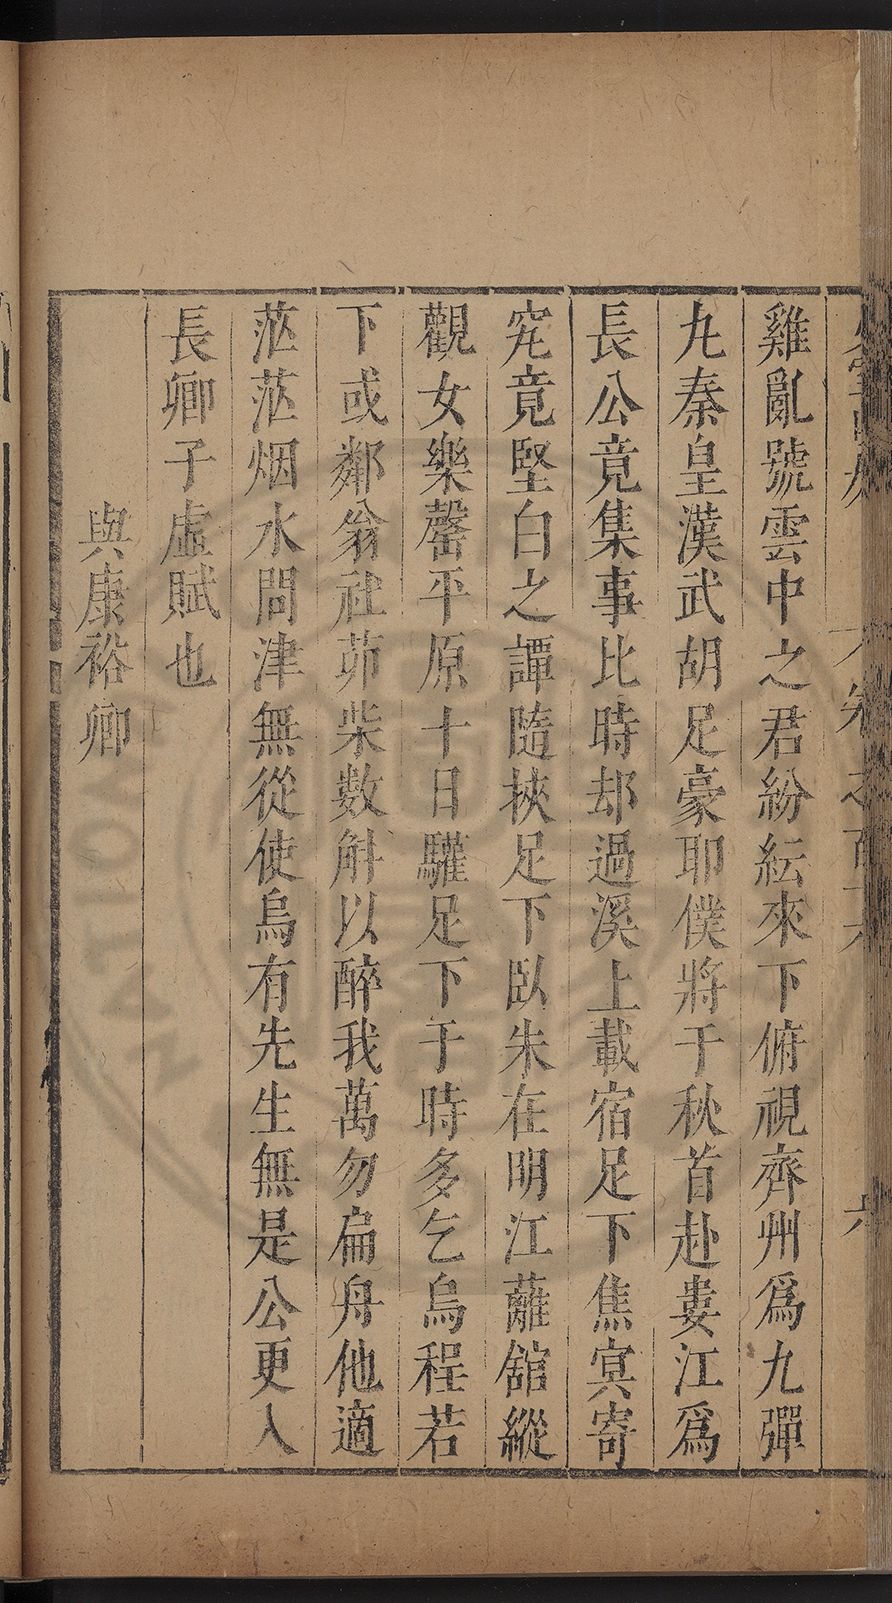 卷之百十六
六
雞亂號雲中之君紛紜來下俯視齊州爲九彈
九秦皇漢武胡足豪耶僕將于秋首赴婁江爲
長公竟集事比時却過溪上載宿足下焦㝠寄
究竟堅白之譚隨挾足下臥朱在明江蘺舘縱
觀女樂罄平原十日驩足下于時多乞烏程若
下或鄰翁社茆柴數斛以醉我萬勿扁舟他適
茫茫烟水問津無從使烏有先生無是公更入
長卿子虛賦也
與康裕卿